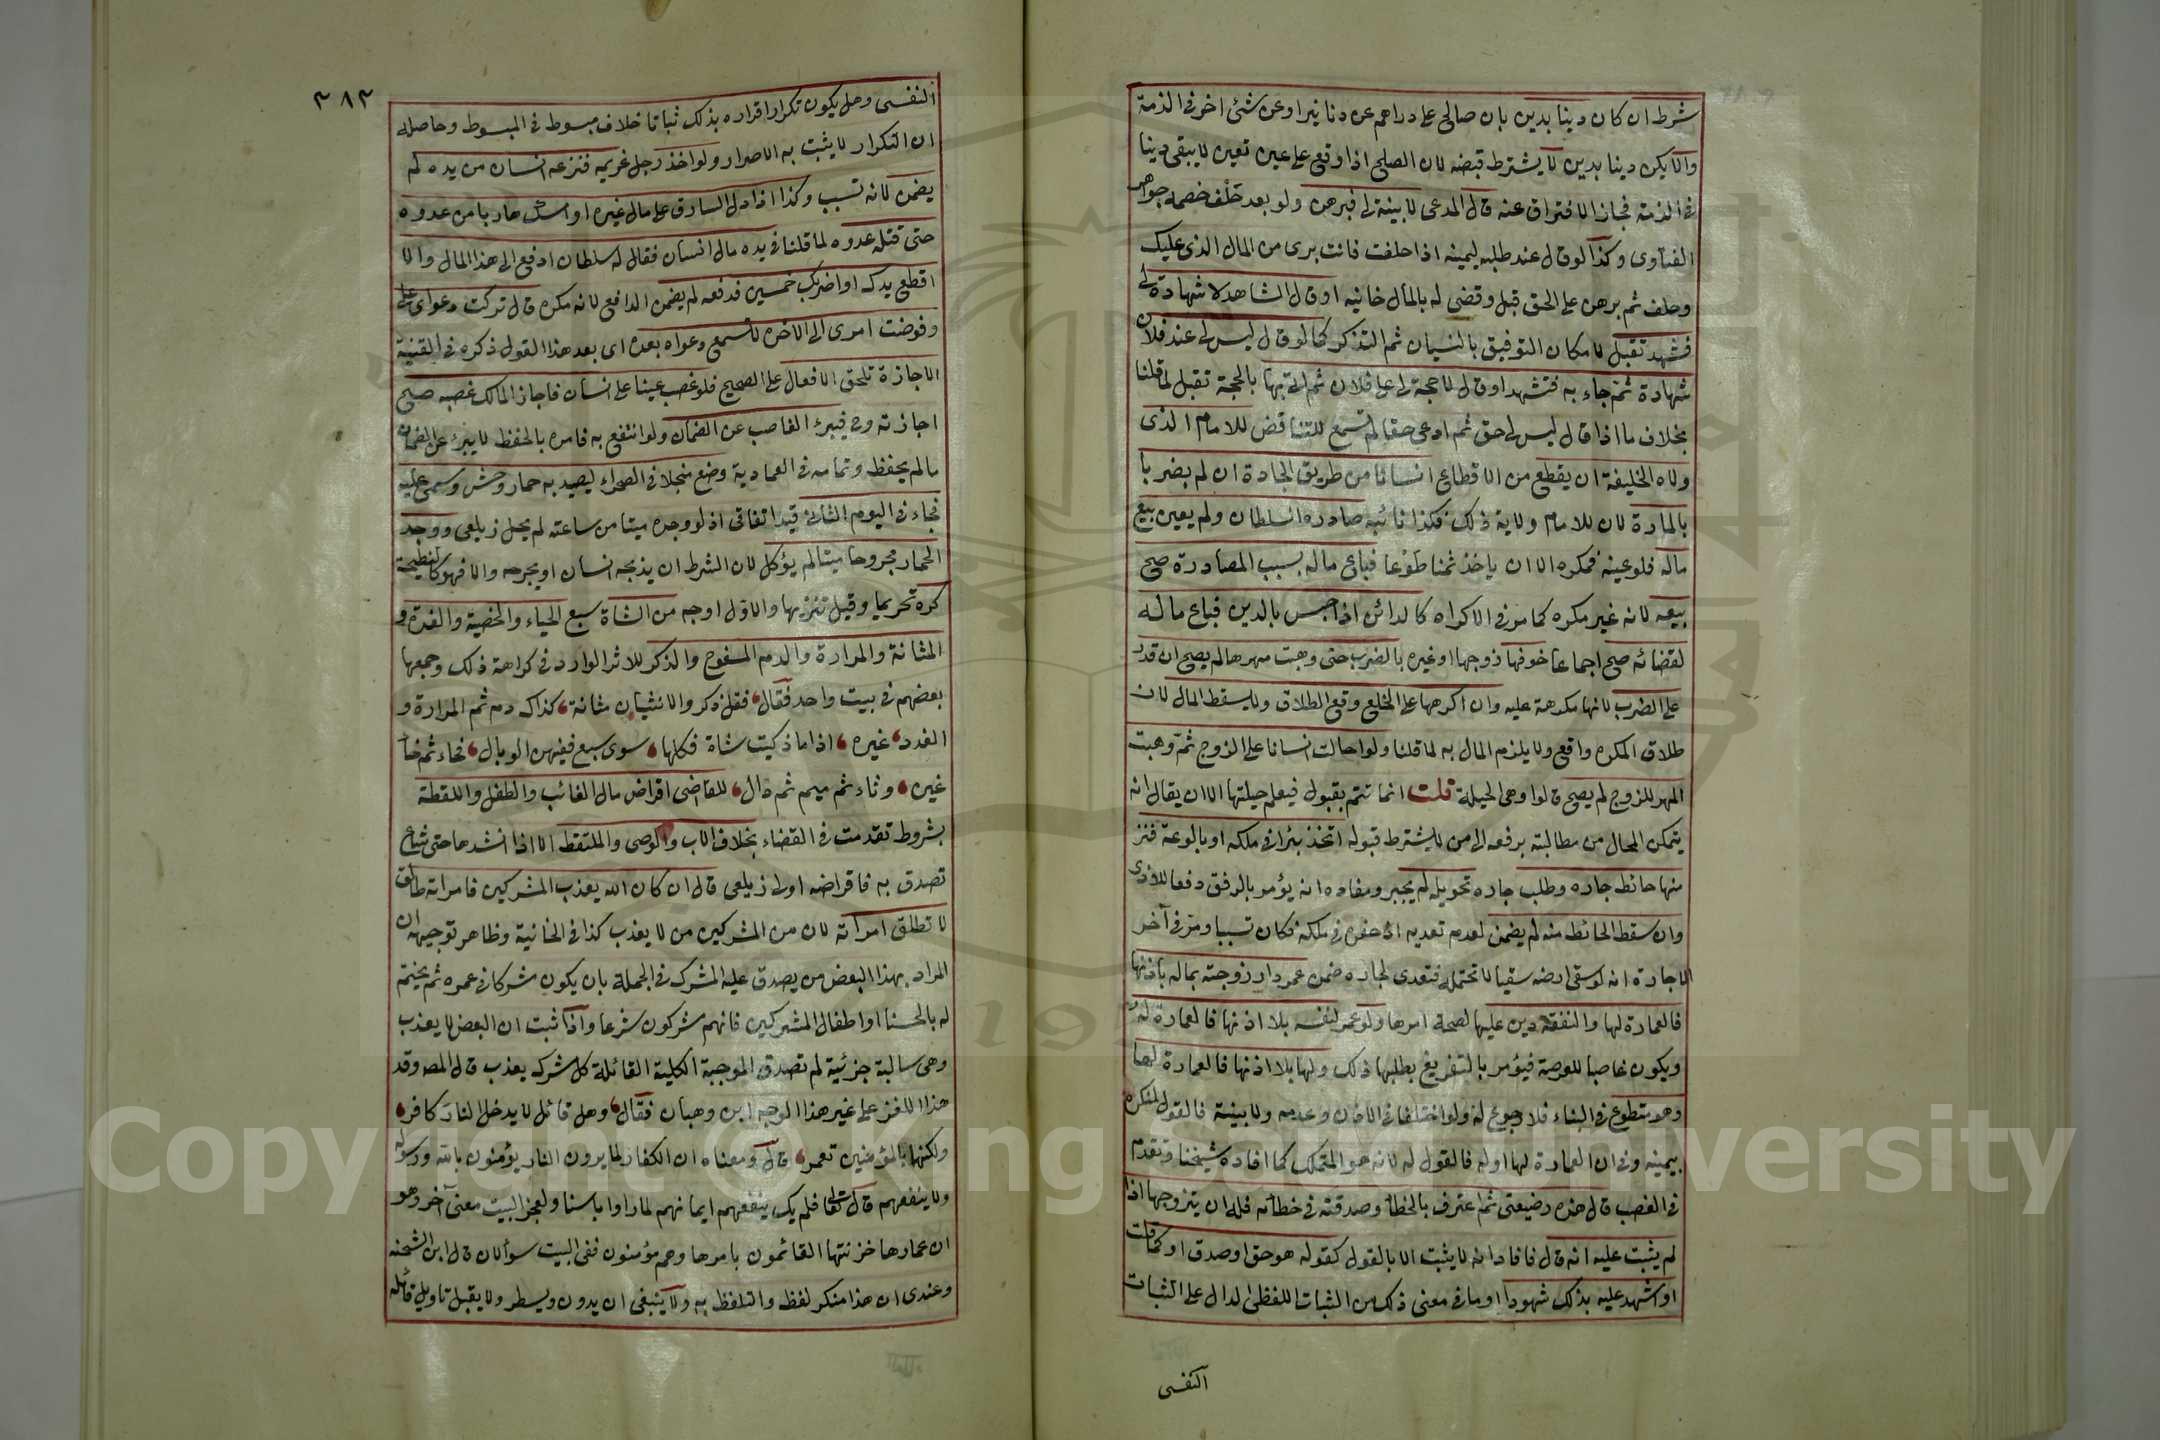 شرط ان كان دينا بدين بان صالح على دراهم عن دنانير او عن شئ اخر في الذمة
والا يكن دينا بدين لا يشترط قبضه لان الصلح اذا وقع على عين تعين لا يبقى دينا
في الذمة فجاز الافتراق عنه قال المدعى لا بينة لي فبرهن ولو بعد حلف خصمه جواهر
الفتاوى وكذا لو قال عند طلبه ليمينه اذا حلفت فانت برى من المال الذى عليك
وحلف ثم برهن على الحق قبل وقضى له بالمال خانيه او قال الشاهد لا شهادة لي
فشهد تقبل لامكان التوفيق بالنسيان ثم التذكر كما لو قال ليس لي عند فلان
شهادة ثم جاء به فشهد او قال لا حجة لي على فلان ثم اتى بها بالحجة تقبل لما قلنا
بخلاف ما اذا قال ليس لي حق ثم ادعى حقا لم تسمع للتناقض للامام الذى
ولاه الخليفة ان يقطع من الاقطاع انسانا من طريق الجادة ان لم يضر با
بالمارة لان للامام ولاية ذلك فكذا نائبه صادره السلطان ولم يعين بيع
ماله فلو عينه فمكره الا ان ياخذ ثمنا طوعا فباع ماله بسبب المصادرة صح
بيعه لانه غير مكره كما مر في الاكراه كالدائن اذا حبس بالدين فباع ماله
لقضائه صح اجماعا خوفها زوجها او غيره بالضرب حتى وهبت مهرها لم يصح ان قدر
على الضرب لانها مكرهة عليه وان اكرهها على الخلع وقع الطلاق ولا يسقط المال لان
طلاق المكره واقع ولا يلزم المال به لما قلنا ولو احالت انسانا على الزوج ثم وهبت
المهر للزوج لم يصح قالوا وهى الحيلة قلت انما تتم بقبول فيعلم حيلتها الا ان يقال انه
يتمكن المحال من مطالبته برفعه الى من لا يشترط قبوله اتخذ بئرا في ملكه او بالوعة فنز
منها حائط جاره وطلب جاره تحويله لم يجبر ومفاده انه يؤمر بالرفق دفعا للاذى
وان سقط الحائط منه لم يضمن لعدم تعديه اذ حفره في ملكه فكان تسببا ومر في آخر
الاجارة انه لو سقى ارضه سقيا لا تحتمله فتعدى لجاره ضمن عمر دار زوجته بماله باذنها
فالعمارة لها والنفقة دين عليها لصحة امرها ولو عمر لنفسه بلا اذنها فالعمارة له
ويكون غاصبا للعرصة فيؤمر بالتفريغ بطلبها ذلك ولها بلا اذنها فالعمارة لها
وهو متطوع في البناء فلا رجوع له ولو اختلفا في الاذن وعدمه ولا بينة فالقول لمنكره
بيمينه وفى ان العمارة لها او له فالقول له لانه هو المتملك كما افاده شيخنا وتقدم
في الغصب قال هذه رضيعتى ثم اعترف بالخطأ وصدقته في خطائه فله ان يتزوجها اذا
لم يثبت عليه انه قال فافاد انه لا يثبت الا بالقول كقوله هو حق او صدق او كما قلت
او اشهد عليه بذلك شهودا او ما في معنى ذلك من الثبات اللفظى الدال على الثبات
النفسى
٣٨٣
النفسى وهل يكون تكرار اقراره بذلك ثباتا خلاف مبسوط في المبسوط وحاصله
ان التكرار لا يثبت به الاصرار ولو اخذ رجل غريمه فنزعه انسان من يده لم
يضمن لانه تسبب وكذا اذا دل السارق على مال غيره او امسك هاربا من عدوه
حتى قتله عدوه لما قلنا في يده مال انسان فقال له سلطان ادفع الى هذا المال والا
اقطع يدك او اضربك خمسين فدفعه لم يضمن الدافع لانه مكره قال تركت دعواى على
وفوضت امرى الى الاخره لا تسمع دعواه بعده اى بعد هذا القول ذكره في القنية
الاجازة تلحق الافعال على الصحيح فلو غصب عينا على انسان فاجاز المالك غصبه صح
اجازته وح فيبرء الغاصب عن الضمان ولو انتفع به فامره بالحفظ لا يبرء عن الضمان
مالم يحفظ وتمامه في العمادية وضع منجلا في الصحراء ليصيد به حمار وحش وسمى عليه
فجاء في اليوم الثانى قيد اتفاقى اذ لو وجده ميتا من ساعته لم يحل زيلعى ووجد
الحمار مجروحا ميتا لم يؤكل لان الشرط ان يذبحه انسان او يجرحه والا فهو كالنطيحة
كره تحريما وقيل تنزيها والاول اوجه من الشاة سبع الحياء والخصية والغدة و
المثانة والمرارة والدم المسفوح والذكر للاثر الوارد في كراهة ذلك وجمعها
بعضهم في بيت واحد فقال فقل ذكر والانثيان مثانة كذاك دم ثم المرارة و
الغدد غيره اذا ما ذكيت شاة فكلها سوى سبع ففيهن الوبال فحاء ثم خا
غين وثاء ثم ميم ثم ذال للقاضى اقراض مال الغائب والطفل واللقطة
بشروط تقدمت في القضاء بخلاف الاب والوصى والملتقط الا اذا انشدها حتى شاع
تصدق به فاقراضه اولى زيلعى قال ان كان الله يعذب المشركين فامراته طالق
لا تطلق امراته لان من المشركين من لا يعذب كذا في الخانية وظاهر توجيهه ان
المراد بهذا البعض من يصدق عليه المشرك في الجملة بان يكون مشركا في عمره ثم يختم
له بالحسنا او اطفال المشركين فانهم مشركون شرعا واذا ثبت ان البعض لا يعذب
وهى سالبة جزئية لم تصدق الموجبة الكلية القائلة كل مشرك يعذب قال المص وقد
هذا اللغز على غير هذا الوجه ابن وهبان فقال وهل قائل لا يدخل النار كافر
ولكنها بالمؤمنين تعمر قال ومعناه ان الكفار لما يرون النار يؤمنون بالله ورسوله
ولا ينفعهم قال تعالى فلم يك ينفعهم ايمانهم لما راوا باسنا ولعجز البيت معنى آخر وهو
ان عمارها خزنتها القائمون بامرها وهم مؤمنون ففى البيت سوألان قال ابن الشحنه
وعندى ان هذا منكر لفظ والتلفظ به ولا ينبغى ان يدون ويسطر ولا يقبل تاويل قائله
Copyright © King Saud University